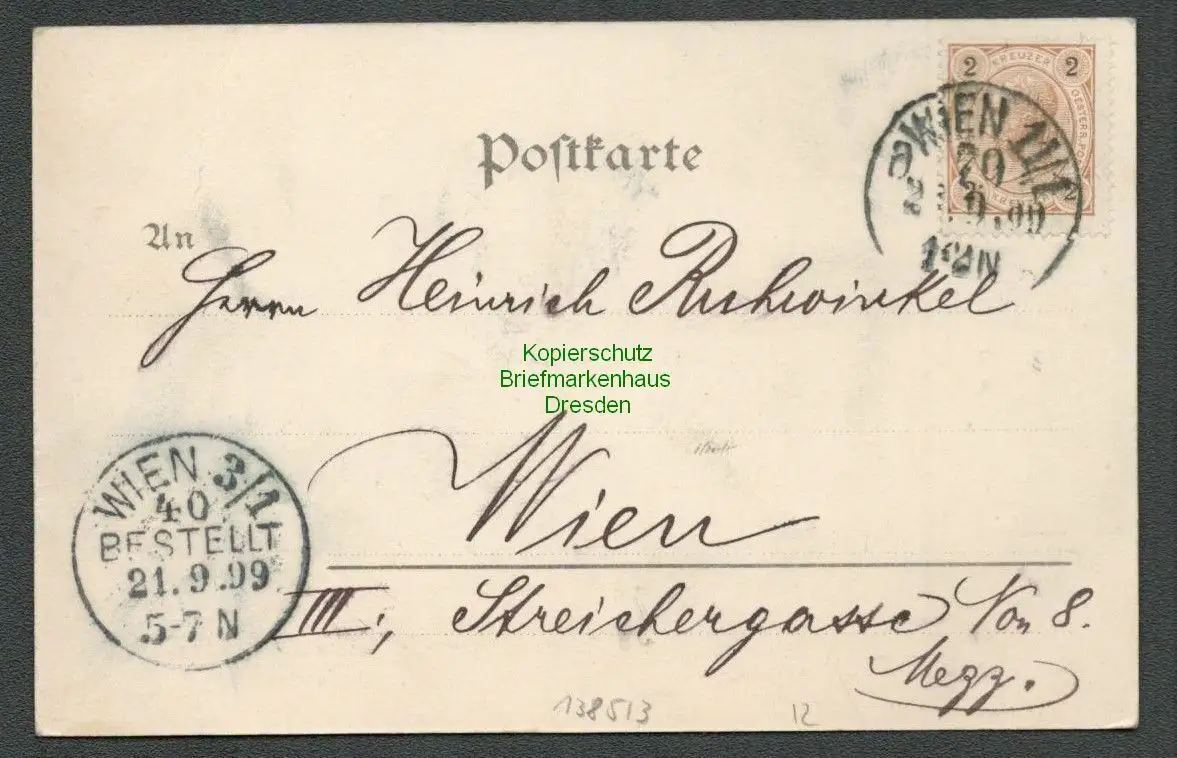 2 KREUZER 2
OESTERR.
WIEN 1/1
9.99
Postkarte
An
Herrn Heinrich Ruhwinkel
Kopierschutz
Briefmarkenhaus
Dresden
Wien
WIEN 3/1
40
BESTELLT
21.9.99
5-7 N
III., Streichergasse No 8.
Mezz.
138513
12